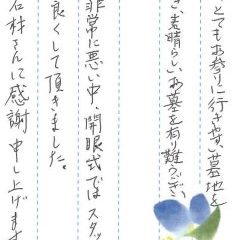 とてもお参りに行きやすい墓地を
き、素晴らしいお墓を有り難うござい
非常に悪い中、開眼式ではスタッ
良くして頂きました。
石材さんに感謝申し上げます